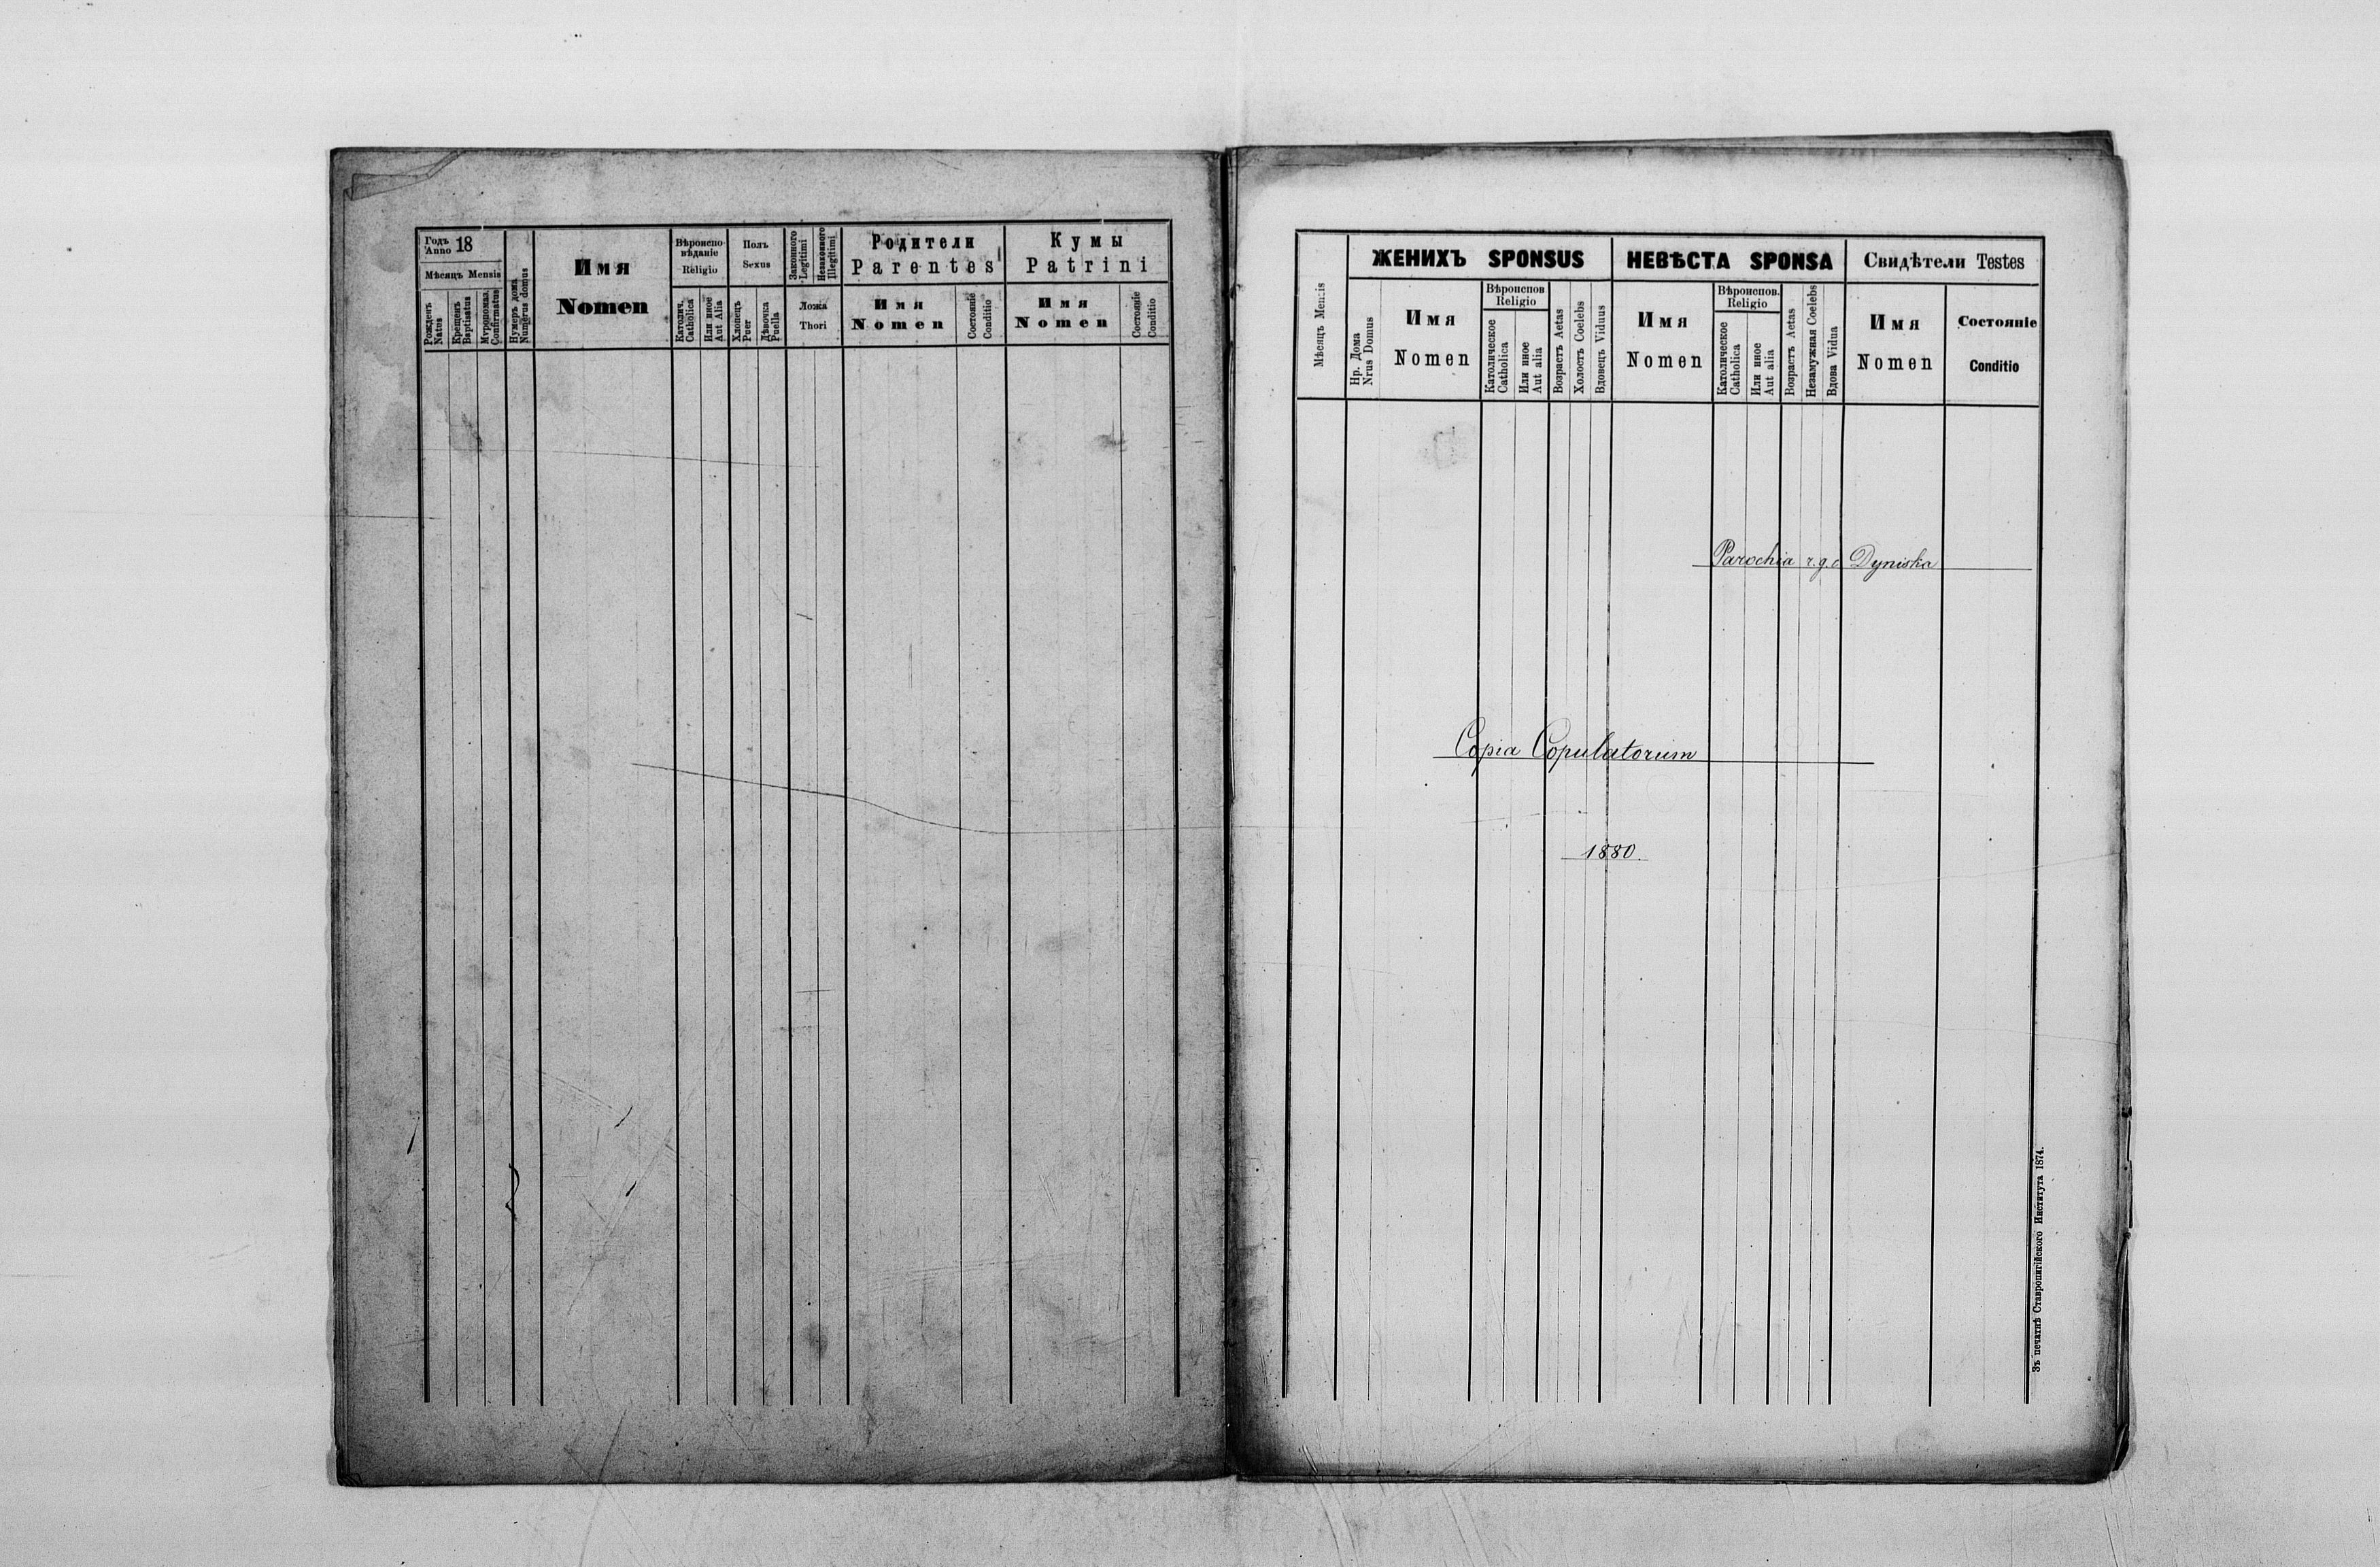 Годъ Anno 18
Мѣсяцъ Mensis
Рожденъ Natus
Крещенъ Baptisatus
Мѵропомаз. Confirmatus
Нумеръ дома Numerus domus
Имя
Nomen
Вѣроиспо-
вѣданіе
Religio
Католич. Catholica
Или иное Aut Alia
Полъ
Sexus
Хлопецъ Puer
Дѣвочка Puella
Законного Legitimi
Незаконного Illegitimi
Ложа
Thori
Родители
Parentes
Имя
Nomen
Состояніе Conditio
Кумы
Patrini
Имя
Nomen
Состояніе Conditio
Мѣсяцъ Mensis
ЖЕНИХЪ SPONSUS
Нр. Дома Nrus Domus
Имя
Nomen
Вѣроиспов
Religio
Католическое Catholica
Или иное Aut alia
Возрастъ Aetas
Холостъ Coelebs
Вдовецъ Viduus
НЕВѢСТА SPONSA
Имя
Nomen
Вѣроиспов.
Religio
Католическое Catholica
Или иное Aut alia
Возрастъ Aetas
Незамужная Coelebs
Вдова Vidua
Свидѣтели Testes
Имя
Nomen
Состояніе
Conditio
Parochia r. g. c. Dyniska
Copia Copulatorum
1880.
Зъ печатнѣ Ставропигійского Института 1874.